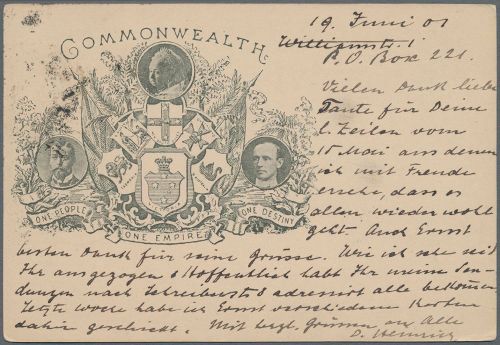 COMMONWEALTH
ONE PEOPLE
ONE EMPIRE
ONE DESTINY
19. Juni 01
Williamstr. 1
P.O. Box 221.
Vielen Dank liebe
Tante für Deine
l. Zeilen vom
15 Mai aus denen
ich mit Freude
ersehe, dass es
allen wieder wohl
geht. Auch Ernst
besten Dank für seine Grüsse. Wie ich sehe seid
Ihr ausgezogen & Hoffentlich habt Ihr meine Sen-
dungen nach adressirt alle bekommen
letzte woche habe ich Ernst verschiedene Karten
dahin geschickt. Mit herzl. Grüssen an Alle
D. Heinrich